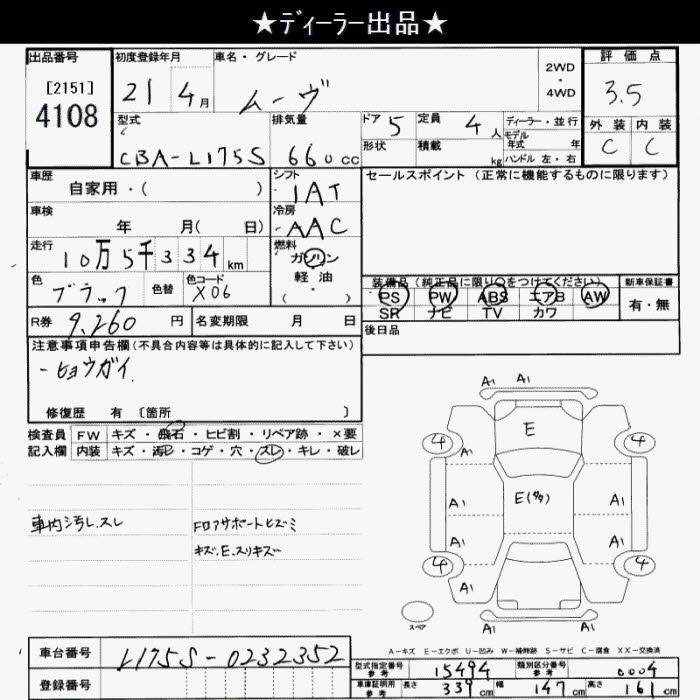 ★ディーラー出品★
出品番号
[2151]
4108
初度登録年月
21 4月
車名・グレード
ムーヴ
2WD
・
4WD
評価点
3.5
外装 内装
C C
型式
CBA-L175S
排気量
660cc
ドア 5
形状
定員 4人
積載 kg
ディーラー・並行
モデル
年式 年
ハンドル 左・右
車歴
自家用・( )
車検
年 月( 日)
走行
10万5千334km
色
ブラック
色替
色コード
X06
R券
9,260円
名変期限 月 日
シフト
IAT
冷房
AAC
燃料
ガソリン
軽油
( ・ )
セールスポイント (正常に機能するものに限ります)
装備品 (純正品に限り○をつけてください)
PS PW ABS エアB AW
SR ナビ TV カワ
新車保証書
有・無
後日品
注意事項申告欄(不具合内容等は具体的に記入して下さい)
-ヒョウガイ.
修復歴 有 [箇所 ]
検査員 FW キズ・飛石・ヒビ割・リペア跡・×要
記入欄 内装 キズ・汚レ・コゲ・穴・スレ・キレ・破レ
車内汚レ.スレ
Fロアサポートヒズミ
キズ.E.スリキズー
A1 A1
E
4 4
A1
A1 E(多) A1
A1 A1
4 4
A1
A1 A1
スペア
A-キズ E-エクボ U-凹み W-補修跡 S-サビ C-腐食 XX-交換済
車台番号
L175S-0232352
登録番号
型式指定番号
参考
15494
類別区分番号
参考
0004
車庫証明用
参考
長さ 339cm 幅 147cm 高さ 161cm